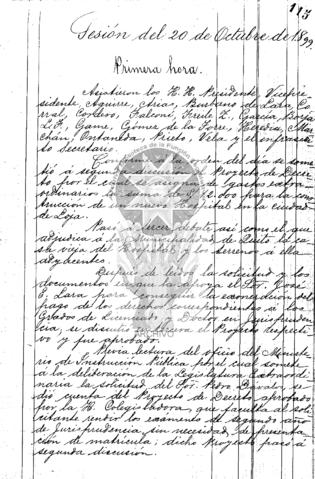 113
Sesión del 20 de Octubre de 1899.
Primera hora.
Asistieron los H. H. Presidente, Vicepre-
sidente, Aguirre, Arias, Burbano de Lara, Co-
rral, Cordero, Falconí, Freile Z., García, Borja
L. F., Game, Gómez de la Torre, Heredia, Mar-
chán, Ontaneda, Prieto, Vela y el infrascrito
Secretario.
Conforme a la orden del día se some-
tió a segunda discusión el Proyecto de Decre-
to por el cual se asigna de gastos extra-
ordinarios la suma de para la cons-
trucción de un nuevo Hospital en la ciudad
de Loja.
Pasó a tercer debate así como el que
adjudica a la Municipalidad de Quito la ca-
sa vieja del Hospital y los terrenos a ella
adyacentes.
Después de leídos la solicitud y los
documentos en que la apoya el Sor. José
E. Lara para conseguir la exoneración del
pago de los derechos correspondientes a los
Grados de Licenciado y Doctor en Jurispruden-
cia, se discutió el Proyecto respecti-
vo y fue aprobado.
Previa lectura del oficio del Ministe-
rio de Instrucción Pública, por el cual somete
a la deliberación de la Legislatura Extraordi-
naria la solicitud del Sor. Pedro Dávalos, se
dió cuenta del Proyecto de Decreto aprobado
por la H. Colegisladora, que faculta al soli-
citante rendir los exámenes de segundo año
de Jurisprudencia, sin necesidad de presenta-
ción de matrícula; dicho Proyecto pasó a
segunda discusión.
ARCHIVO